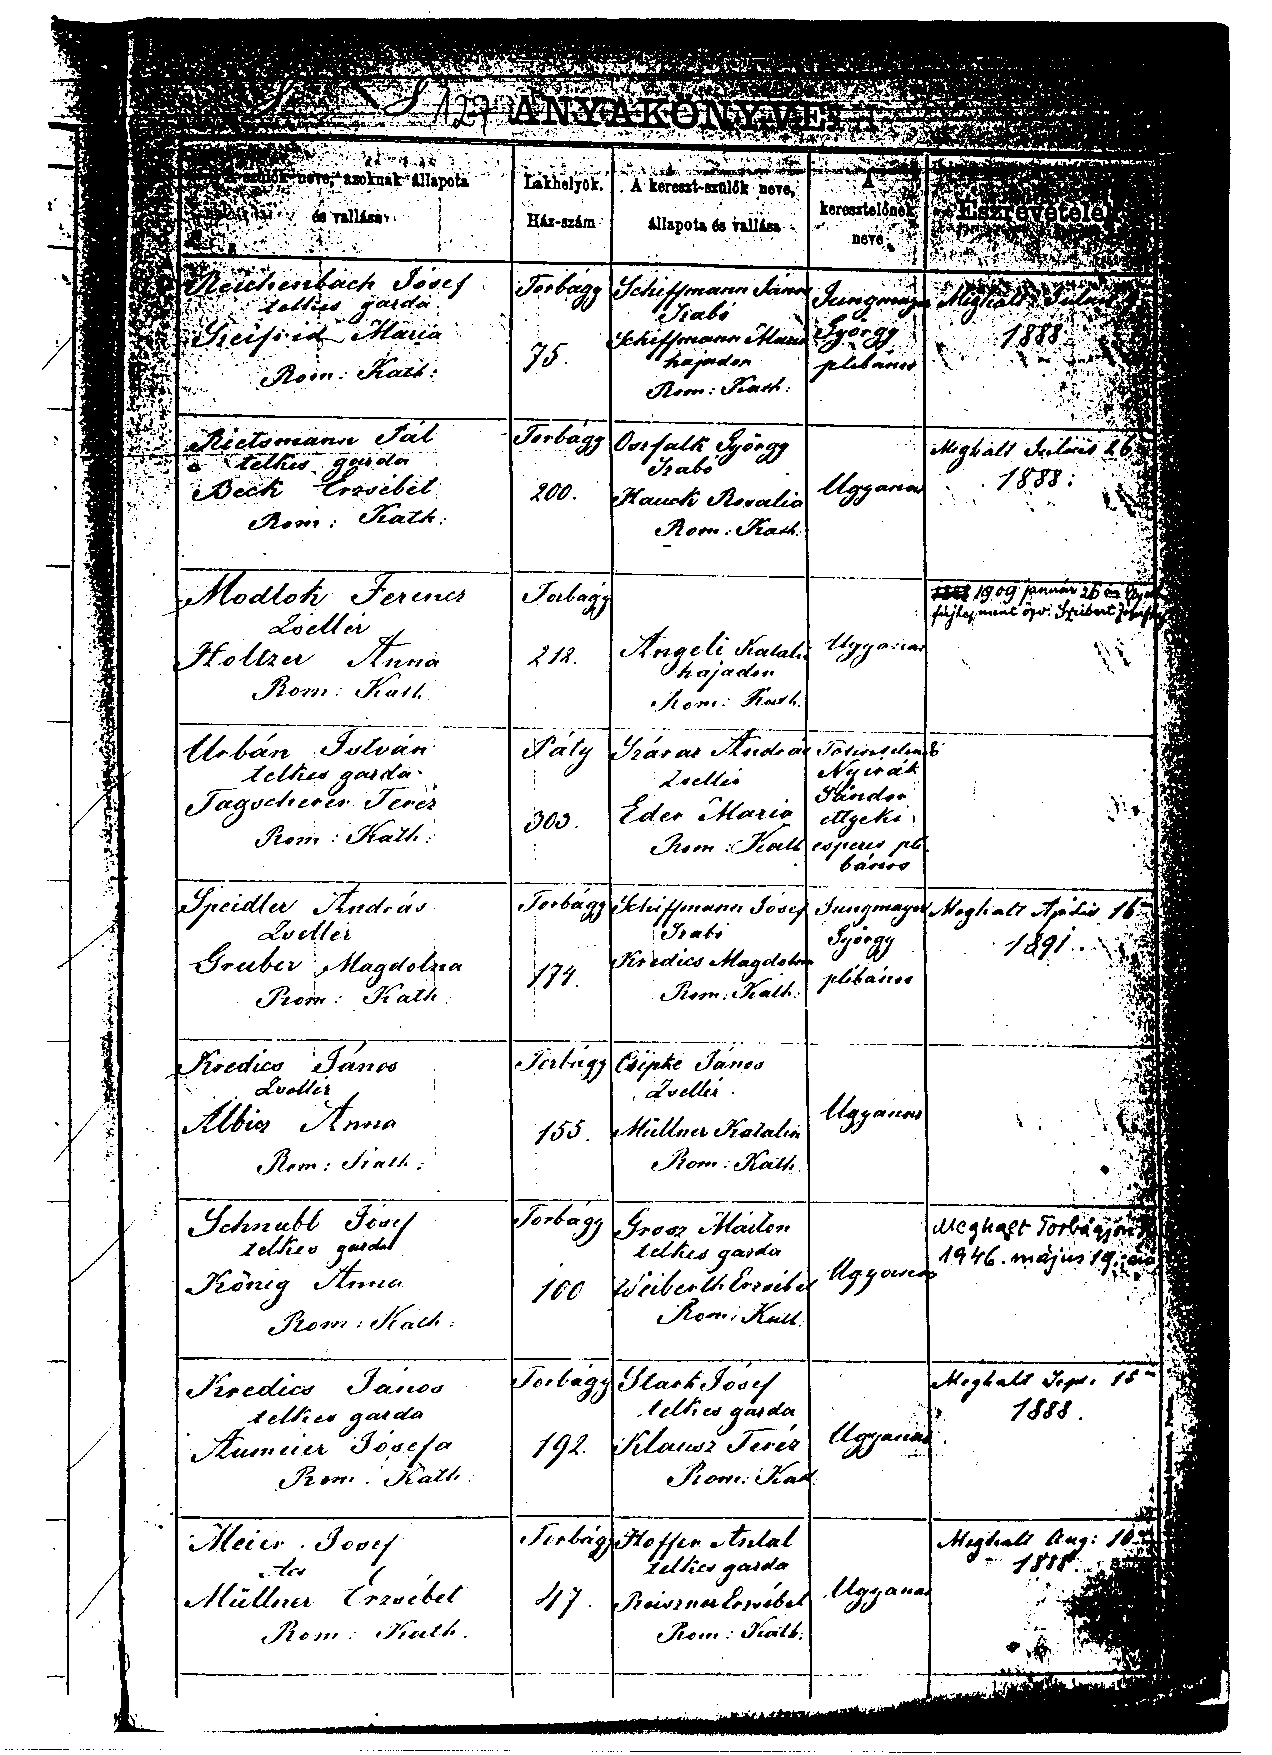 127 ANYAKÖNYVE
szülők neve, azoknak állapota
és vallása
Lakhelyök.
Ház-szám
A kereszt-szülők neve,
állapota és vallása
A
keresztelőnek
neve
Észrevétele
Reichenbach Jósef
telkes gazda
Maria
Rom: Kath:
Torbágy
75.
Schiffmann János
Szabó
Schiffmann Maria
hajadon
Rom: Kath:
Jungmayer
György
plébános
Meghalt
1888
Rietsmann Pál
telkes gazda
Beck Erzsébet
Rom: Kath:
Torbágy
200.
Oszfalk György
Szabó
Hauck Rosalia
Rom: Kath.
Ugyanaz
Meghalt Julius 26
1888.
Modlok Ferencz
Zsellér
Holtzer Anna
Rom: Kath.
Torbágy
212.
Angeli Katalin
hajadon
Rom: Kath.
Ugyanaz
1909 január 26 án
férjhez ment özv. Szeibert
Urbán István
telkes gazda
Tagscherer Teréz
Rom: Kath:
Páty
303.
Száraz András
Zsellér
Eder Maria
Rom: Kath
Nyirák
Sándor
etyeki
esperes plé-
bános
Speidler András
Zsellér
Gruber Magdolna
Rom: Kath.
Torbágy
174.
Schiffmann Jósef
Szabó
Kredics Magdolna
Rom: Kath:
Jungmayer
György
plébános
Meghalt Aprilis 16
1891.
Kredics János
Zsellér
Albisz Anna
Rom: Kath:
Torbágy
155.
Csipke János
Zsellér
Müllner Katalin
Rom: Kath.
Ugyanaz
Schnubl Jósef
telkes gazda
König Anna
Rom: Kath:
Torbágy
160
Grosz Márton
telkes gazda
Weiberth Erzsébet
Rom: Kath.
Ugyanaz
Meghalt Torbágyon
1946. május 19.-én
Kredics János
telkes gazda
Aumeier Jósefa
Rom: Kath.
Torbágy
192.
Stark Jósef
telkes gazda
Klausz Teréz
Rom: Kath
Ugyanaz
Meghalt Sept. 15
1888.
Meier Josef
Ács
Müllner Erzsébet
Rom: Kath.
Torbágy
47.
Hoffer Antal
telkes gazda
Reiszner Erzsébet
Rom: Kath.
Ugyanaz
Meghalt Aug: 10
1888.